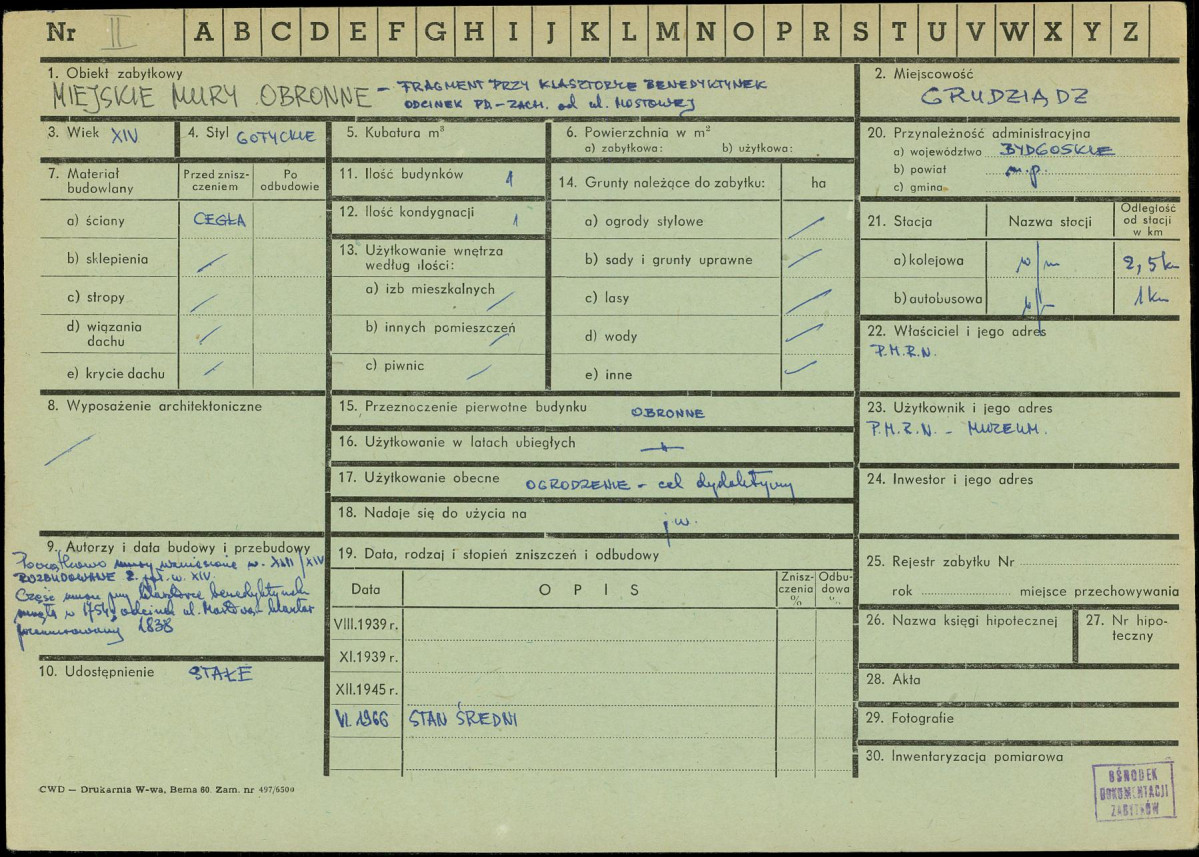 Nr II A B C D E F G H I J K L M N O P R S T U V W X Y Z
1. Obiekt zabytkowy
MIEJSKIE MURY OBRONNE – FRAGMENT PRZY KLASZTORZE BENEDYKTYNEK
ODCINEK PD.-ZACH. od ul. MOSTOWEJ
2. Miejscowość
GRUDZIĄDZ
3. Wiek XIV
4. Styl GOTYCKIE
5. Kubatura m³
6. Powierzchnia w m²
a) zabytkowa: b) użytkowa:
7. Materiał budowlany
Przed zniszczeniem
Po odbudowie
a) ściany CEGŁA
b) sklepienia
c) stropy
d) wiązania dachu
e) krycie dachu
8. Wyposażenie architektoniczne
9. Autorzy i data budowy i przebudowy
Początkowo mury wzniesione w. XIII/XIV
ROZBUDOWANE 2. poł. w. XIV.
Część murów przy klasztorze benedyktynek
w 1754, odcinek ul. Mostowa-
1838
10. Udostępnienie STAŁE
11. Ilość budynków 1
12. Ilość kondygnacji 1
13. Użytkowanie wnętrza
według ilości:
a) izb mieszkalnych
b) innych pomieszczeń
c) piwnic
14. Grunty należące do zabytku: ha
a) ogrody stylowe
b) sady i grunty uprawne
c) lasy
d) wody
e) inne
15. Przeznoczenie pierwotne budynku OBRONNE
16. Użytkowanie w latach ubiegłych
17. Użytkowanie obecne OGRODZENIE – cel dydaktyczny
18. Nadaje się do użycia na j.w.
19. Data, rodzaj i stopień zniszczeń i odbudowy
Data OPIS Zniszczenia % Odbudowa %
VIII.1939 r.
XI.1939 r.
XII.1945 r.
VI.1966 STAN ŚREDNI
20. Przynależność administracyjna
a) województwo BYDGOSKIE
b) powiat m.p.
c) gmina
21. Stacja Nazwa stacji Odległość od stacji w km
a) kolejowa w/m 2,5 km
b) autobusowa 1 km
22. Właściciel i jego adres
P.M.R.N.
23. Użytkownik i jego adres
P.M.R.N. – MUZEUM.
24. Inwestor i jego adres
25. Rejestr zabytku Nr
rok miejsce przechowywania
26. Nazwa księgi hipotecznej
27. Nr hipoteczny
28. Akta
29. Fotografie
30. Inwentaryzacja pomiarowa
OŚRODEK
DOKUMENTACJI
ZABYTKÓW
CWD — Drukarnia W-wa, Bema 60. Zam. nr 497/6500